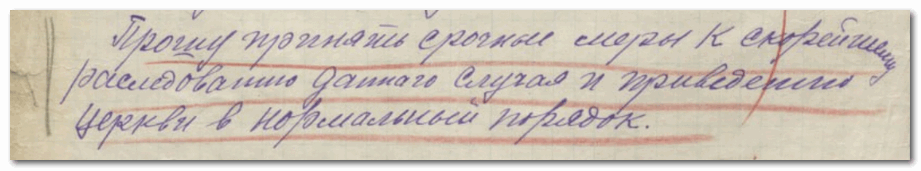 Прошу принять срочные меры к скорейшему
раследованию даннаго случая и приведению
церкви в нормальный порядок.